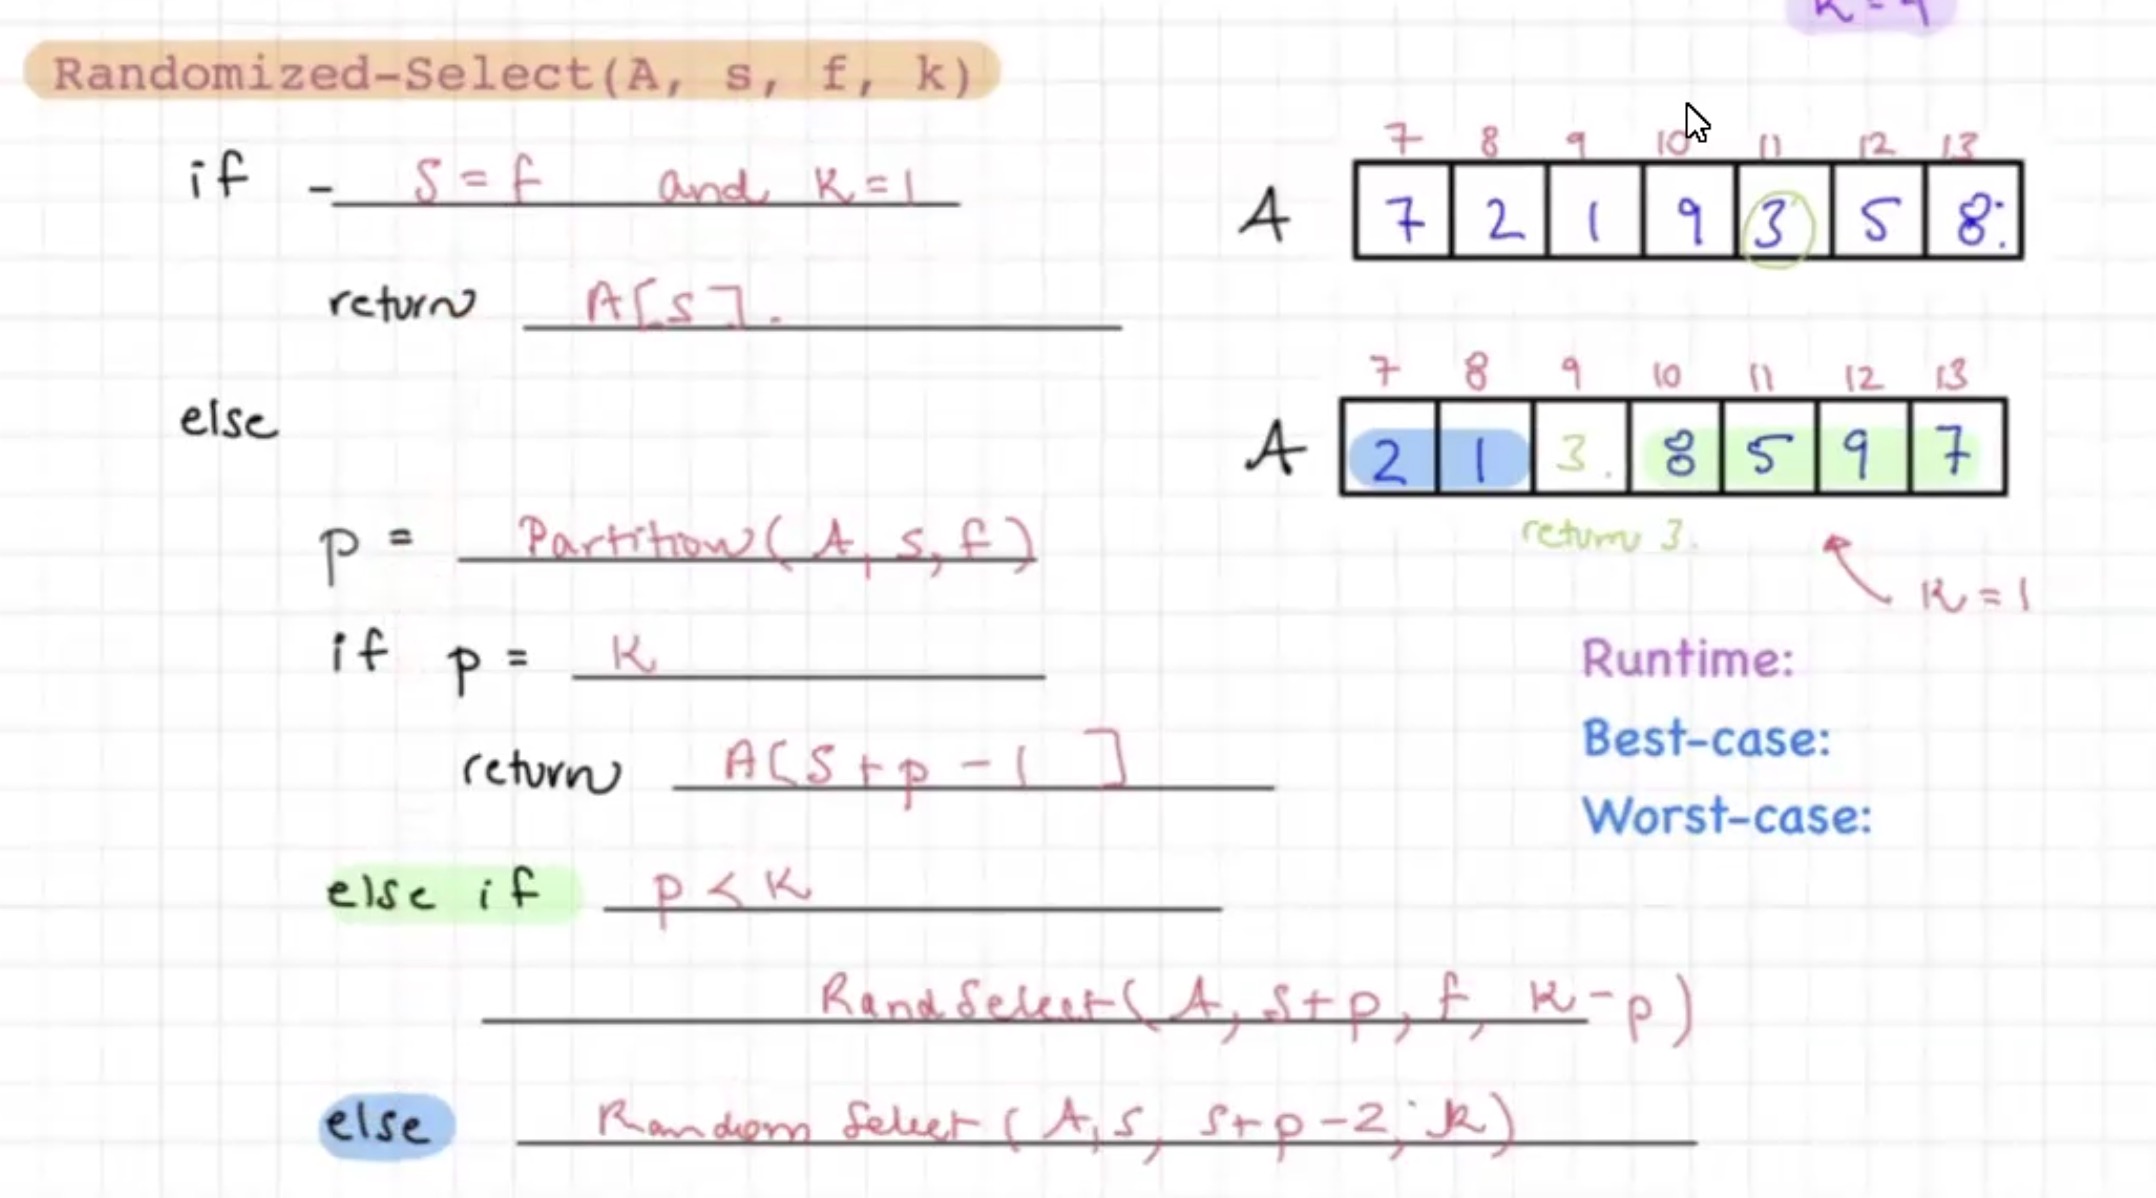 K = 4
Randomized-Select(A, s, f, k)
if - s = f and k = 1
return A[s].
else
p = Partition(A, s, f)
if p = k
return A[s + p - 1]
else if p < k
RandSelect(A, s+p, f, k-p)
else Random Select (A, s, s+p-2, k)
7 8 9 10 11 12 13
A 7 2 1 9 3 5 8
7 8 9 10 11 12 13
A 2 1 3. 8 5 9 7
return 3.
K = 1
Runtime:
Best-case:
Worst-case: